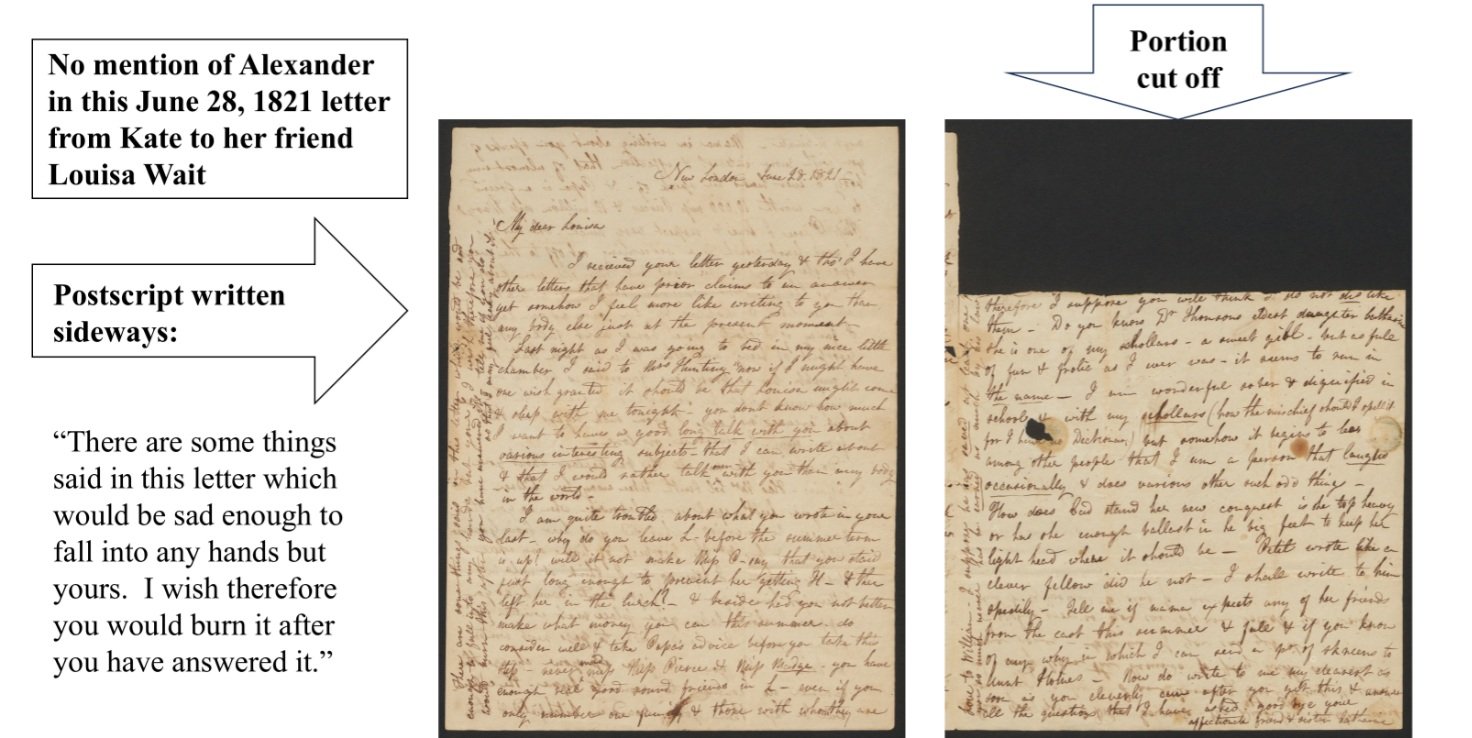 No mention of Alexander
in this June 28, 1821 letter
from Kate to her friend
Louisa Wait
Postscript written
sideways:
“There are some things
said in this letter which
would be sad enough to
fall into any hands but
yours.  I wish therefore
you would burn it after
you have answered it.”
New London June 28. 1821
My dear Louisa
I recieved your letter yesterday & tho' I have
other letters that have prior claims to an answer
yet somehow I feel more like writing to you than
any body else just at the present moment
Last night as I was going to bed in my nice little
chamber I said to Miss Hunting now if I might have
one wish granted it should be that Louisa might come
& sleep with me tonight - you dont know how much
I want to have a good long talk with you about
various interesting subjects - that I can write about
& that I would rather talk with you than any body
in the world -
I am quite troubled about what you wrote in your
last - why do you leave L - before the summer term
is up! will it not make Miss P - that you staid
just long enough to prevent her getting H - & then
left her in the lurch! - & beside had you not better
make what money you can this summer do
consider well & take Papa's advice before you take this
step - never mind Miss Pierce & Miss - you have
enough real good sound friends in L - even if you
only number one family & those with whom they are
There are some things said in this letter which would be sad
enough to fall into any hands but yours I wish therefore you
would burn this after you have answered it
Portion
cut off
therefore I suppose you will think I do not dislike
them - Do you know Dr Thomsons eldest daughter
she is one of my schollars - a sweet girl - but as full
of fun & frolic as I ever was - it seems to run in
the name - I am wonderful sober & dignified in
school & with my schollars (how the mischief should I spell it
for I have no Dictionary) but somehow it begins to
among other people that I am a person that laughs
occasionally & does various other such odd things -
How does stand her new conquest is she top heavy
or has she enough ballast in he big feet to keep her
light head where it should be - wrote like a
clever fellow did he not - I shall write to him
speedily - tell me if mama expects any of her friends
from the east this summer & fall & if you know
of any way in which I can send a pr of to
Aunt - Now do write to me my dearest as
soon as you cleverly can after you get this & answer
all the questions that I have asked good bye your
affectionate friend & sister Catharine